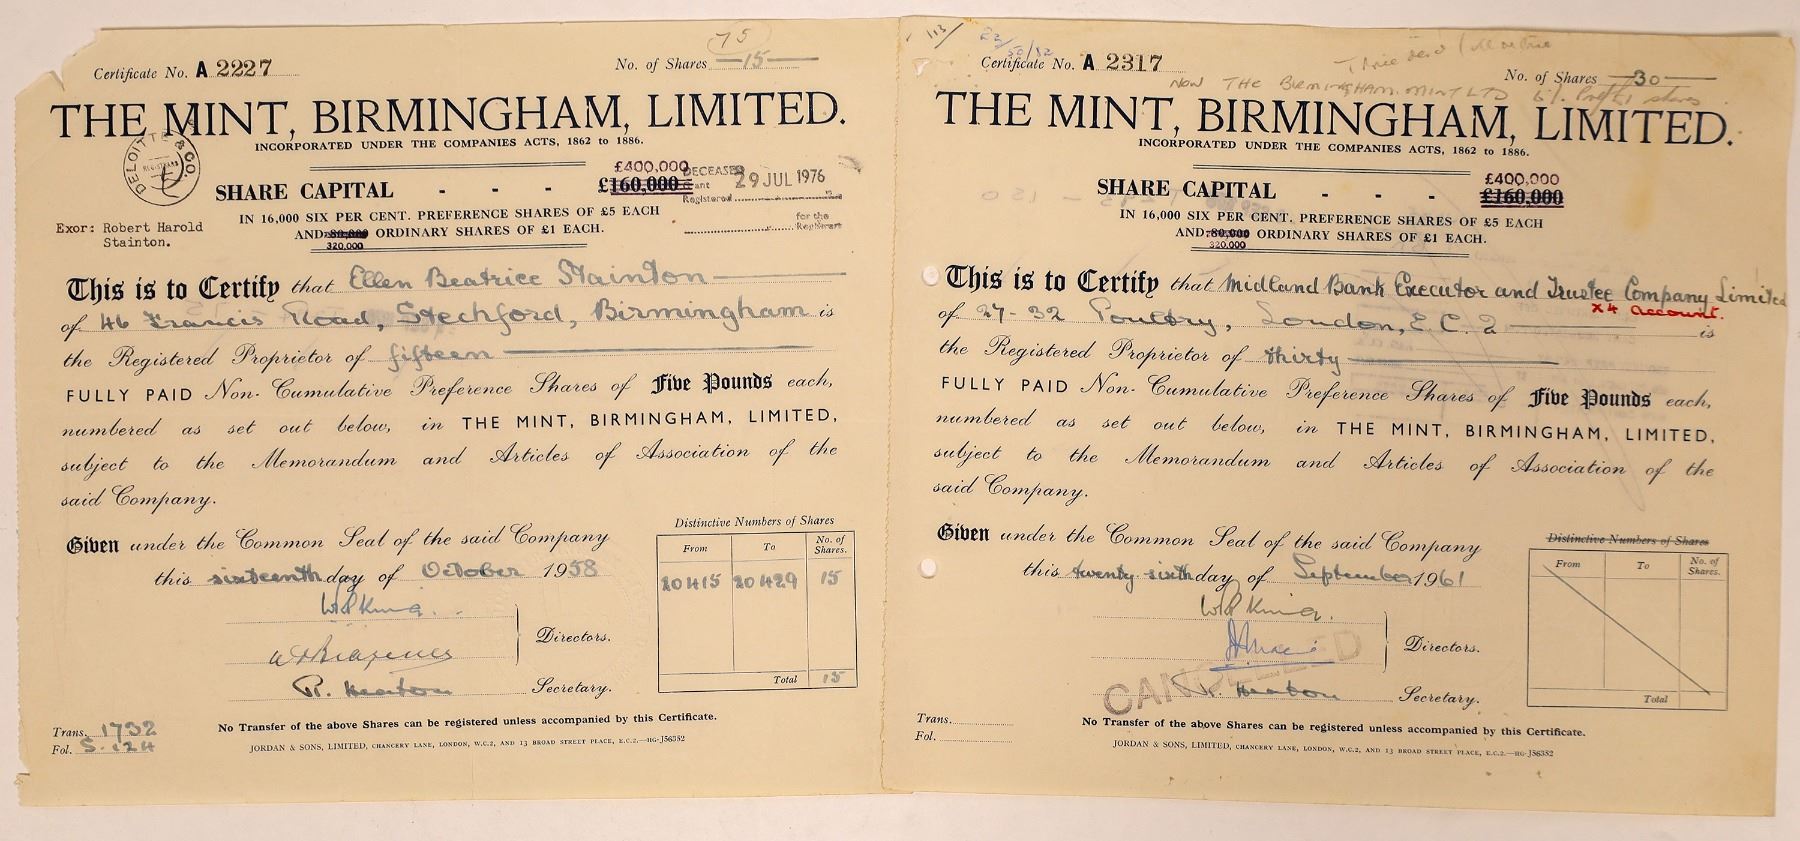 75
Certificate No. A 2227
No. of Shares 15
THE MINT, BIRMINGHAM, LIMITED.
INCORPORATED UNDER THE COMPANIES ACTS, 1862 to 1886.
DELOITTE & CO.
REGISTRARS
£400,000
SHARE CAPITAL - - - £160,000
DECEASED
29 JUL 1976
Registered
for the
Registrars
IN 16,000 SIX PER CENT. PREFERENCE SHARES OF £5 EACH
AND 80,000 ORDINARY SHARES OF £1 EACH.
320,000
Exor: Robert Harold
Stainton.
This is to Certify that Ellen Beatrice Stainton
of 46 Francis Road, Stechford, Birmingham is
the Registered Proprietor of fifteen
FULLY PAID Non-Cumulative Preference Shares of Five Pounds each,
numbered as set out below, in THE MINT, BIRMINGHAM, LIMITED,
subject to the Memorandum and Articles of Association of the
said Company.
Given under the Common Seal of the said Company
this sixteenth day of October 1958
Distinctive Numbers of Shares
From To No. of Shares.
20415 20429 15
Total 15
W R King
Directors.
R. Heaton
Secretary.
Trans. 1732
Fol. S. 124
No Transfer of the above Shares can be registered unless accompanied by this Certificate.
JORDAN & SONS, LIMITED, CHANCERY LANE, LONDON, W.C.2, AND 13 BROAD STREET PLACE, E.C.2.—HG-J56352
113/
Certificate No. A 2317
No. of Shares 30
NOW THE BIRMINGHAM MINT LTD
THE MINT, BIRMINGHAM, LIMITED.
INCORPORATED UNDER THE COMPANIES ACTS, 1862 to 1886.
£400,000
SHARE CAPITAL - - - £160,000
IN 16,000 SIX PER CENT. PREFERENCE SHARES OF £5 EACH
AND 80,000 ORDINARY SHARES OF £1 EACH.
320,000
This is to Certify that Midland Bank Executor and Trustee Company Limited
X4 account.
of 27-32 Poultry, London, E.C.2 is
the Registered Proprietor of thirty
FULLY PAID Non-Cumulative Preference Shares of Five Pounds each,
numbered as set out below, in THE MINT, BIRMINGHAM, LIMITED,
subject to the Memorandum and Articles of Association of the
said Company.
Given under the Common Seal of the said Company
this twenty sixth day of September 1961
Distinctive Numbers of Shares
From To No. of Shares.
Total
W R King
Directors.
CANCELLED
R. Heaton
Secretary.
Trans.
Fol.
No Transfer of the above Shares can be registered unless accompanied by this Certificate.
JORDAN & SONS, LIMITED, CHANCERY LANE, LONDON, W.C.2, AND 13 BROAD STREET PLACE, E.C.2.—HG-J56352